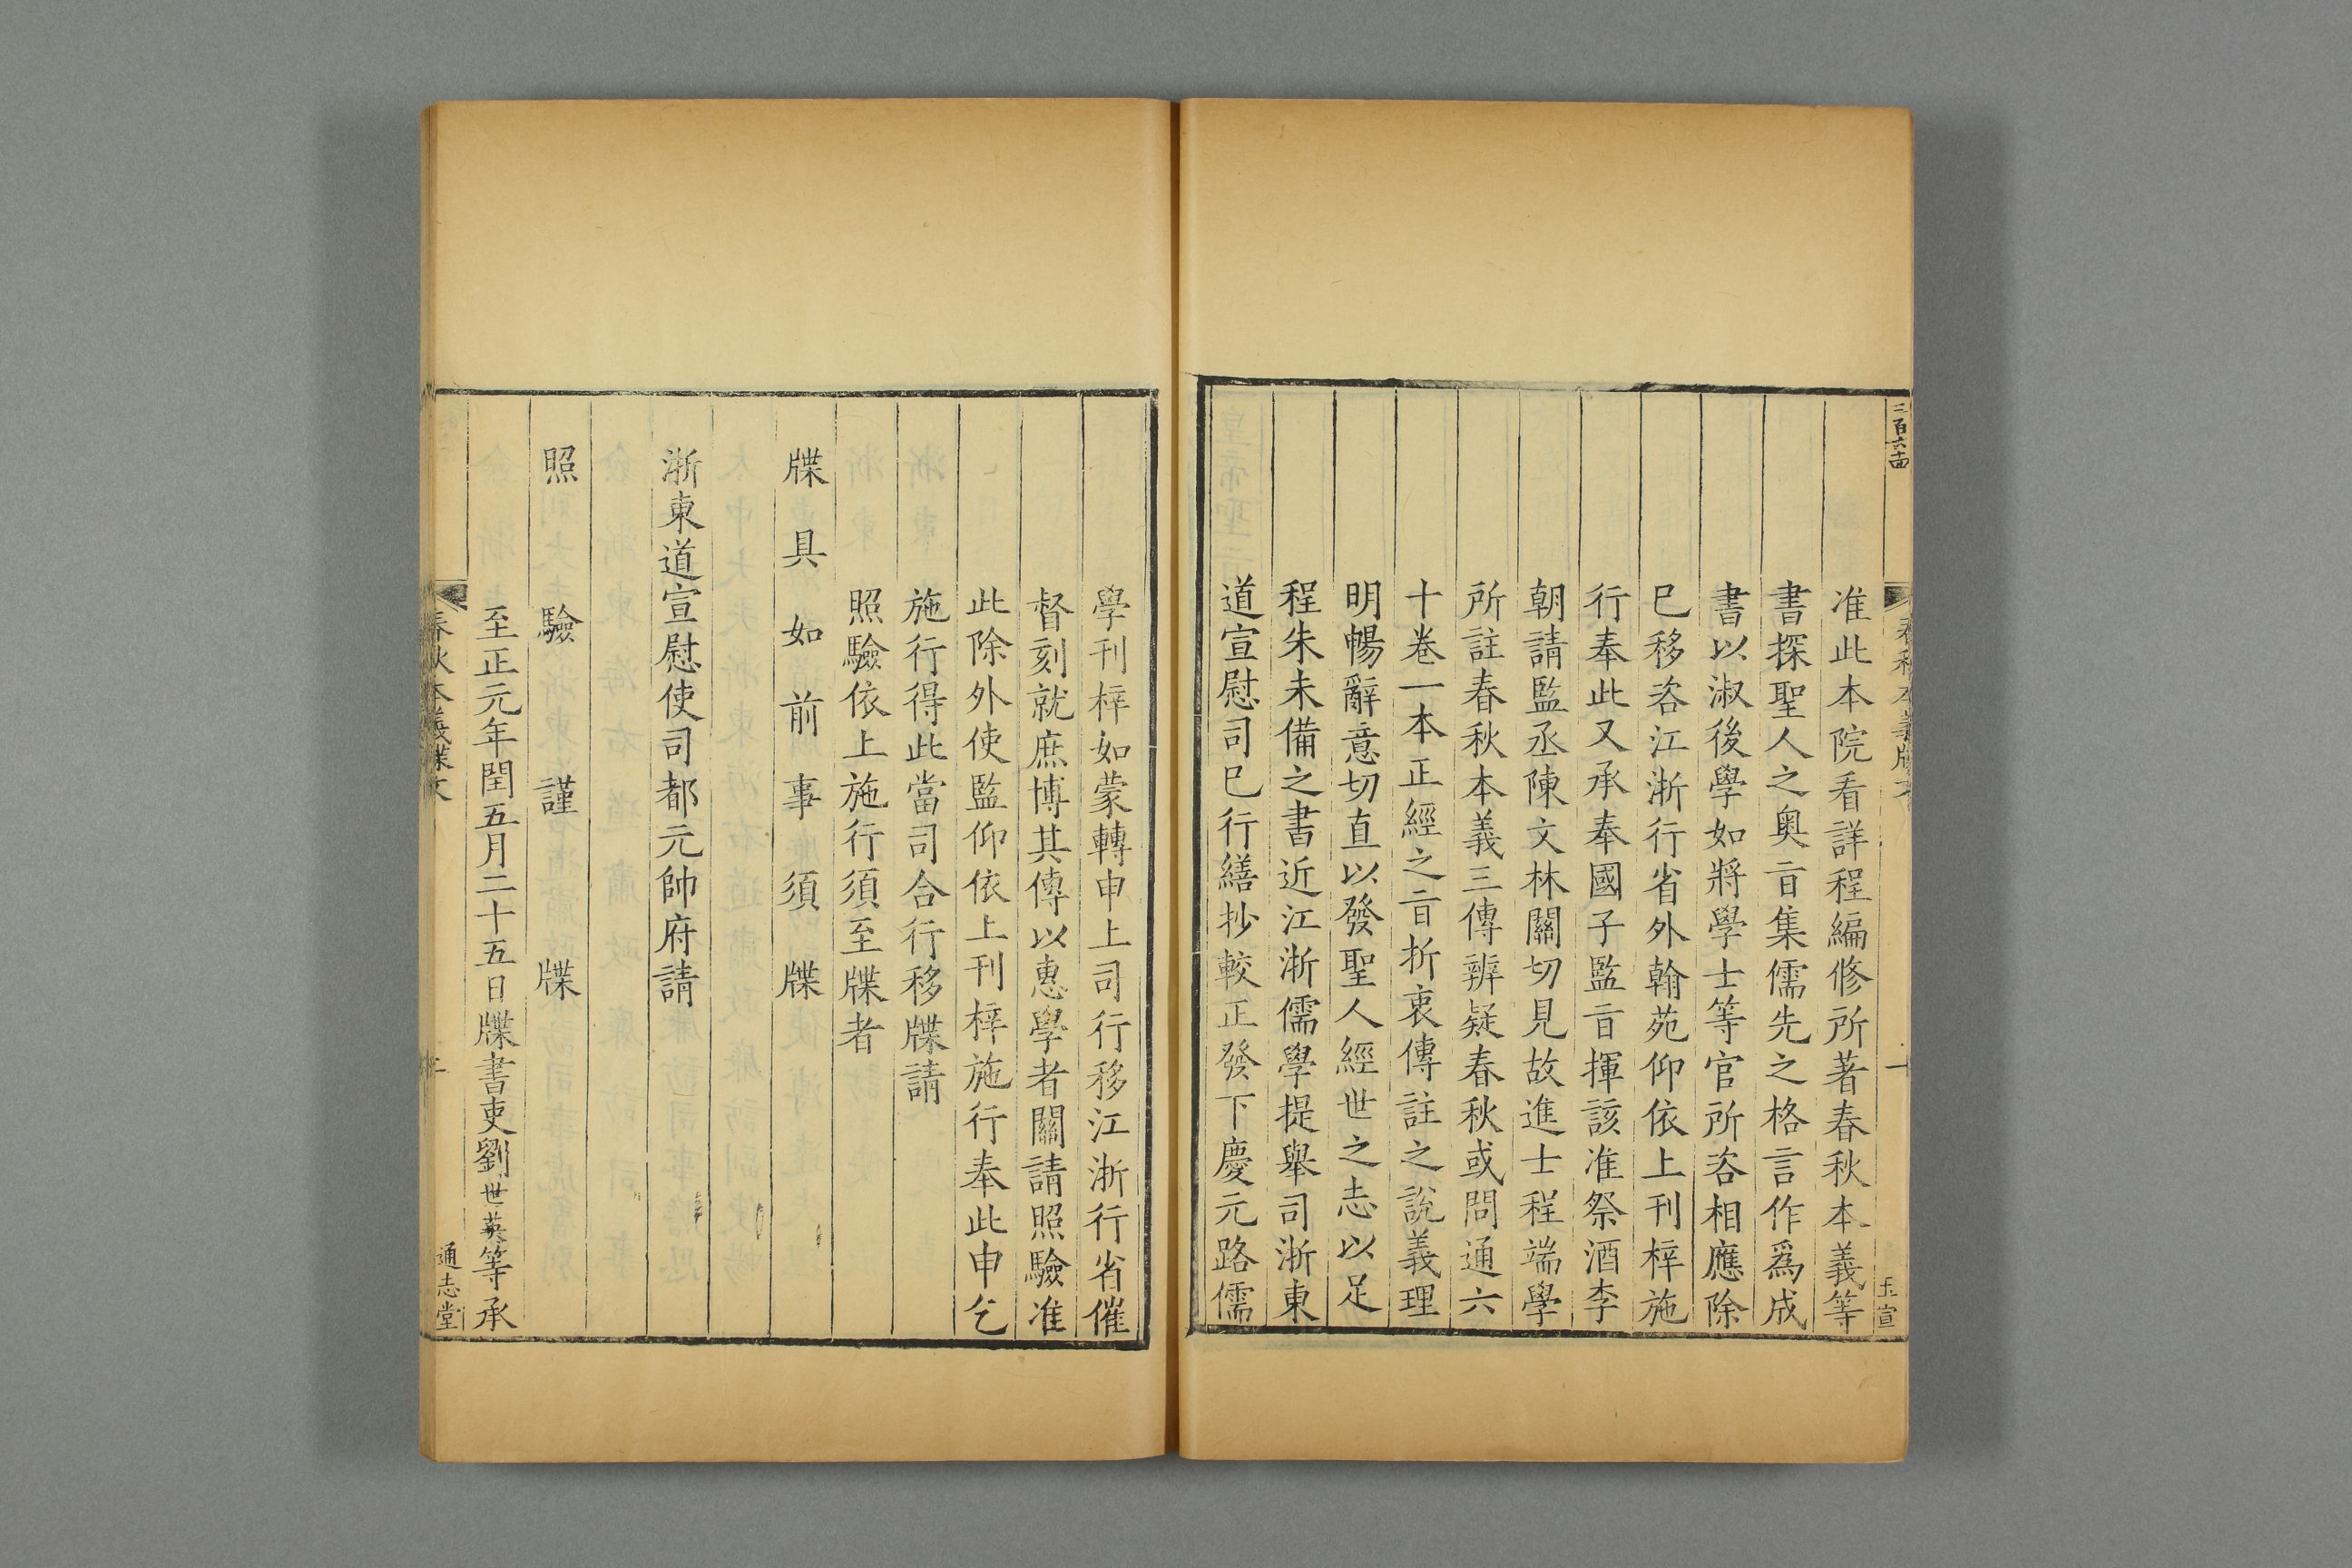 准此本院看詳程編修所著春秋本義等
書探聖人之奥㫖集儒先之格言作爲成
書以淑後學如將學士等官所咨相應除
已移咨江浙行省外翰苑仰依上刊梓施
行奉此又承奉國子監㫖揮該准祭酒李
朝請監丞陳文林關切見故進士程端學
所註春秋本義三傳辨疑春秋或問通六
十卷一本正經之㫖折衷傳註之說義理
明暢辭意切直以發聖人經世之志以足
程朱未備之書近江浙儒學提舉司浙東
道宣慰司已行繕抄較正發下慶元路儒
學刊梓如蒙轉申上司行移江浙行省催
督刻就庶博其傳以惠學者關請照驗准
此除外使監仰依上刊梓施行奉此申乞
施行得此當司合行移牒請
照驗依上施行須至牒者
牒具如前事須牒
浙東道宣慰使司都元帥府請
照驗謹牒
至正元年閏五月二十五日牒書吏劉世英等承
春秋本義牒文
二
通志堂